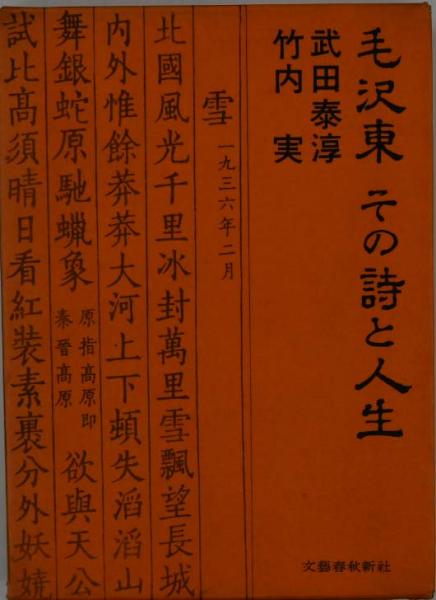 毛沢東 その詩と人生
武田泰淳
竹内 実
雪 一九三六年二月
北國風光千里冰封萬里雪飄望長城
內外惟餘莽莽大河上下頓失滔滔山
舞銀蛇原馳蠟象 原指高原即秦晉高原 欲與天公
試比高須晴日看紅裝素裹分外妖嬈
文藝春秋新社